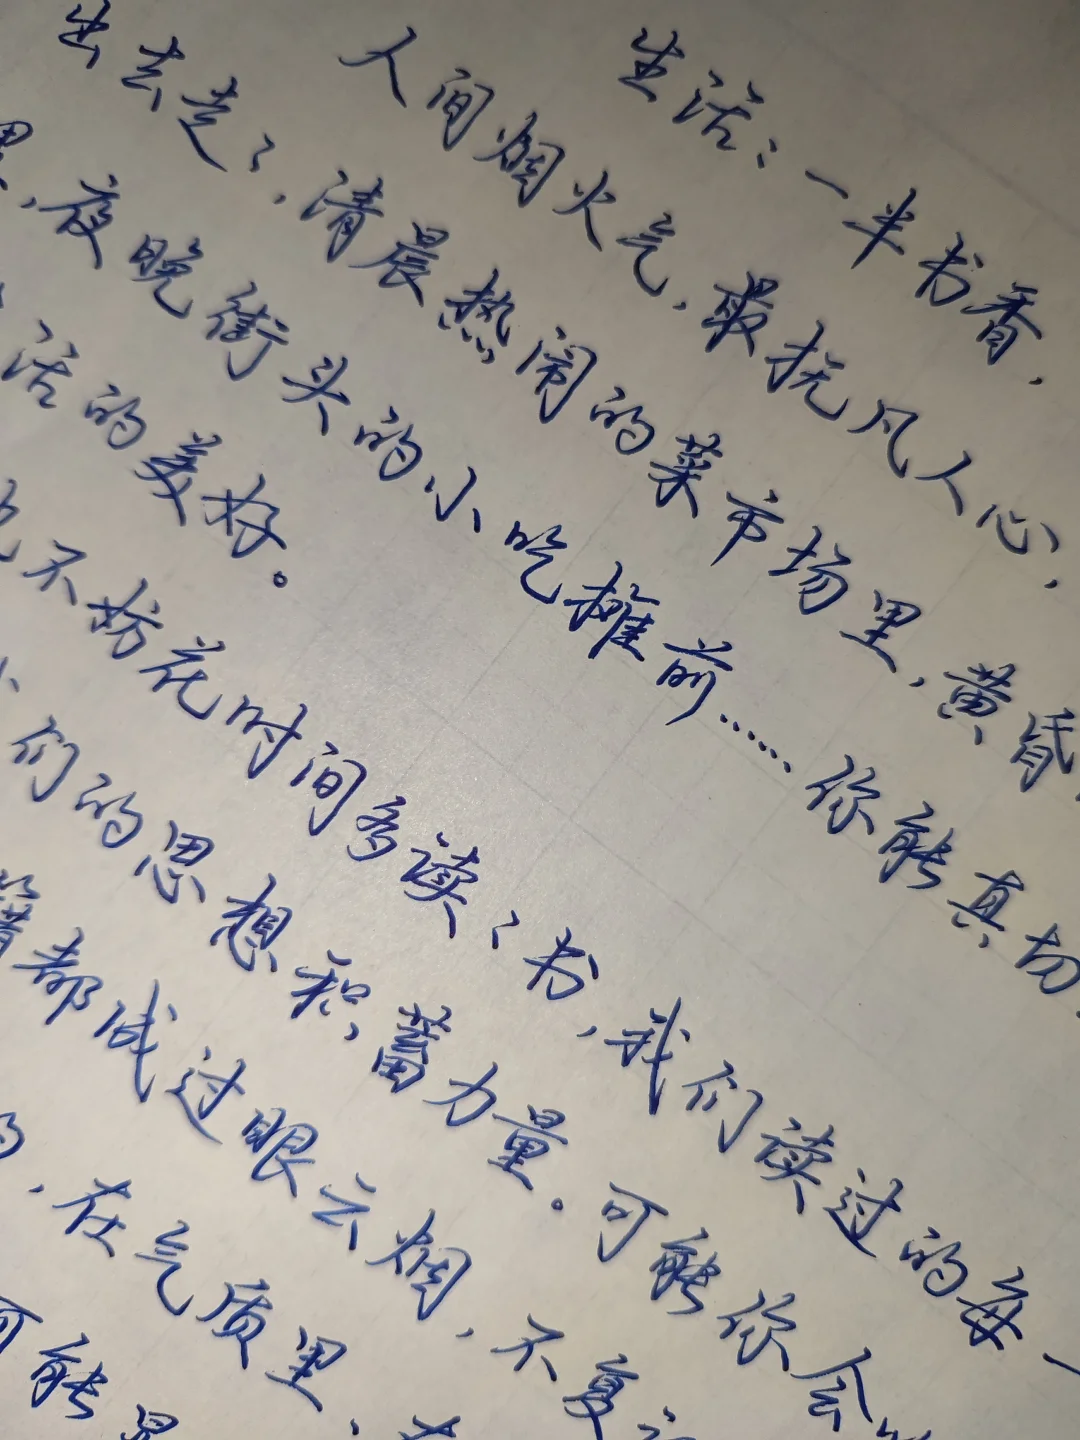 生活：一半书香，
人间烟火气，最抚凡人心，
出去走々，清晨热闹的菜市场里，黄昏
里，夜晚街头的小吃摊前……你能真切
活的美好。
不妨花时间多读々书，我们读过的每一
们的思想积蓄力量。可能你会
籍都成过眼云烟，不复
的，在气质里，
可能是